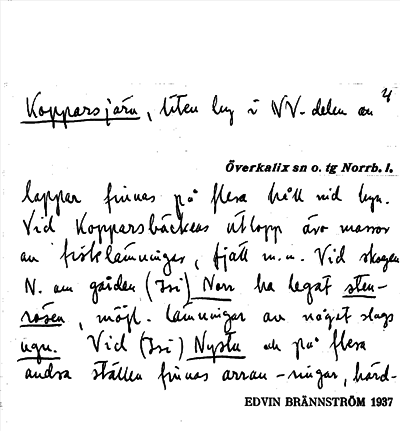 4
Kopparsjärv, liten by i NV-delen av
Överkalix sn o. tg Norrb. l.
lappar finnas på flera håll vid byn.
Vid Kopparsbäckens utlopp äro massor
av fisklämningar, fjäll m.m. Vid skogen
N. om gården (Isi) Norr ha legat sten-
rosen, möjl. lämningar av något slags
ugn. Vid (Isi) Nystu och på flera
andra ställen finnas arran-ningar, hård-
EDVIN BRÄNNSTRÖM 1937